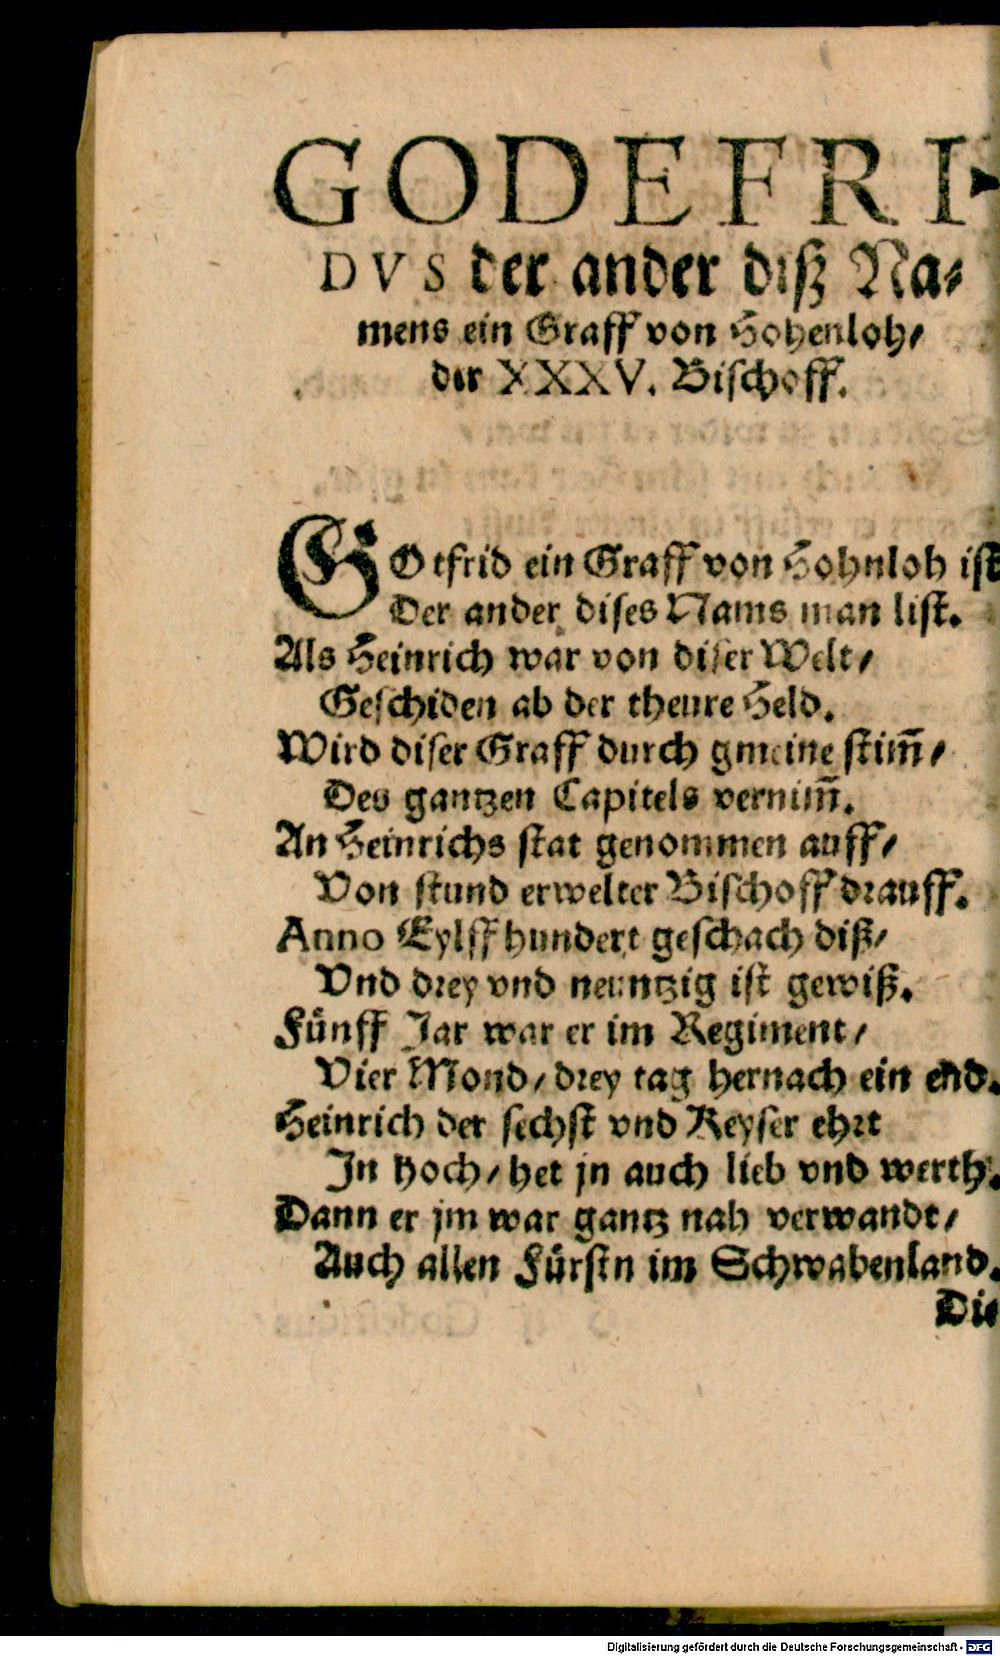 GODEFRI-
DVS der ander diß Na⸗
mens ein Graff von Hohenloh/
der XXXV. Bischoff.
GOtfrid ein Graff von Hohnloh ist
Der ander dises Nams man list.
Als Heinrich war von diser Welt/
Geschiden ab der theure Held.
Wird diser Graff durch gmeine stim̄/
Des gantzen Capitels vernim̄.
An Heinrichs stat genommen auff/
Von stund erwelter Bischoff drauff.
Anno Eylff hundert geschach diß/
Vnd drey vnd neuntzig ist gewiß.
Fünff Jar war er im Regiment/
Vier Mond/ drey tag hernach ein end.
Heinrich der sechst vnd Keyser ehrt
In hoch/ het jn auch lieb vnd werth.
Dann er jm war gantz nah verwandt/
Auch allen Fürstn im Schwabenland.
Die
Digitalisierung gefördert durch die Deutsche Forschungsgemeinschaft - DFG